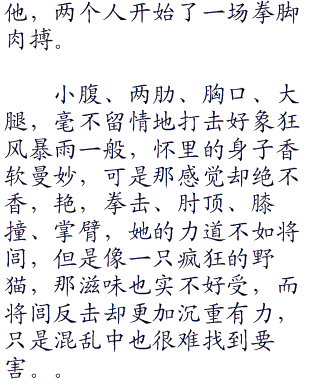 他，两个人开始了一场拳脚
肉搏。
小腹、两肋、胸口、大
腿，毫不留情地打击好象狂
风暴雨一般，怀里的身子香
软曼妙，可是那感觉却绝不
香，艳，拳击、肘顶、膝
撞、掌臂，她的力道不如将
闾，但是像一只疯狂的野
猫，那滋味也实不好受，而
将闾反击却更加沉重有力，
只是混乱中也很难找到要
害。。